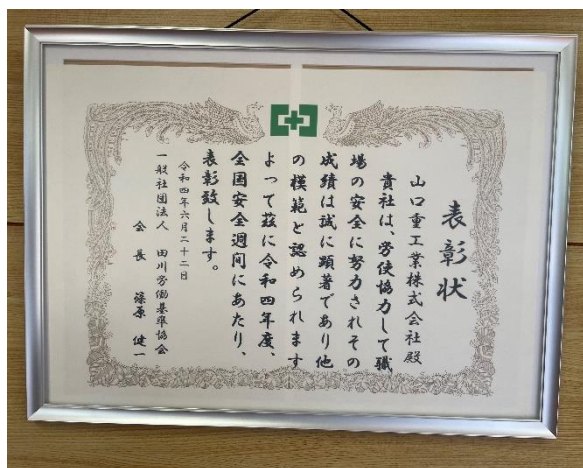 表彰状
山口重工業株式会社殿
貴社は、労使協力して職
場の安全に努力されその
成績は誠に顕著であり他
の模範と認められます
よって茲に令和四年度、
全国安全週間にあたり、
表彰致します。
令和四年六月二十二日
一般社団法人 田川労働基準協会
会長 篠原健一